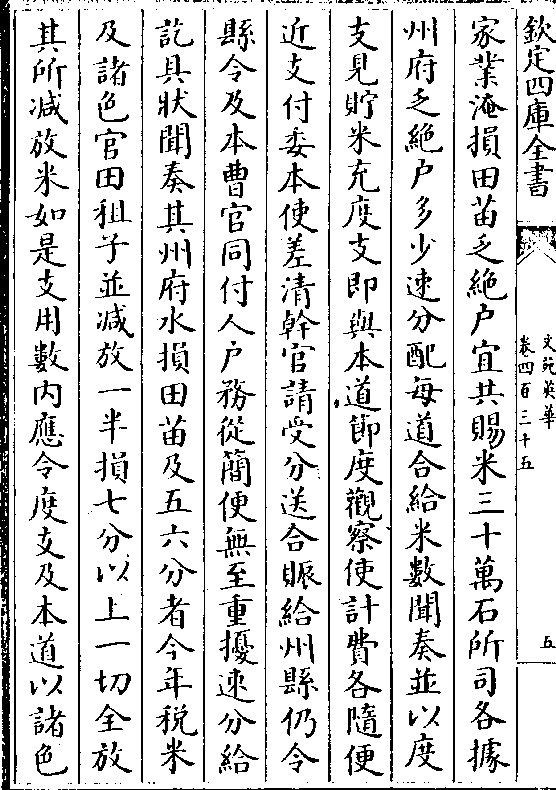 欽定四庫全書
文苑英華
卷四百三十五
五
家業淹損田苗乏絶户宜共賜米三十萬石所司各據
州府乏絶户多少速分配每道合給米數聞奏並以度
支見貯米充度支即與本道節度觀察使計費各隨便
近支付委本使差清幹官請受分送合賑給州縣仍令
縣令及本曹官同付人户務從簡便無至重擾速分給
訖具狀聞奏其州府水損田苗及五六分者今年稅米
及諸色官田租子並減放一半損七分以上一切全放
其所減放米如是支用數内應令度支及本道以諸色